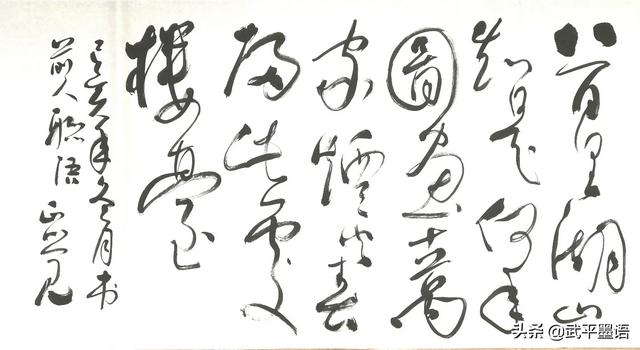 八百里湖山
知是何年
圖畫十萬
家煙火盡
歸此處
樓臺
己亥年冬月书
前人聯语
头条 @武平墨语